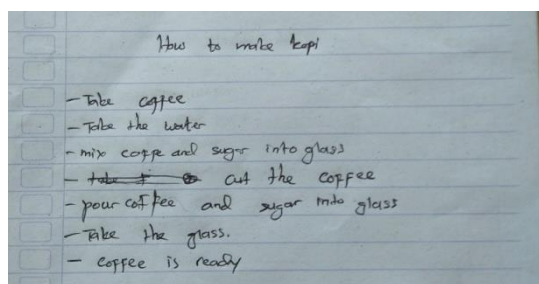 How to make kopi
- Take coffee
- Take the water
- mix coffe and sugar into glass
- cut the coffee
- pour coffee and sugar into glass
- Take the glass.
- coffee is ready